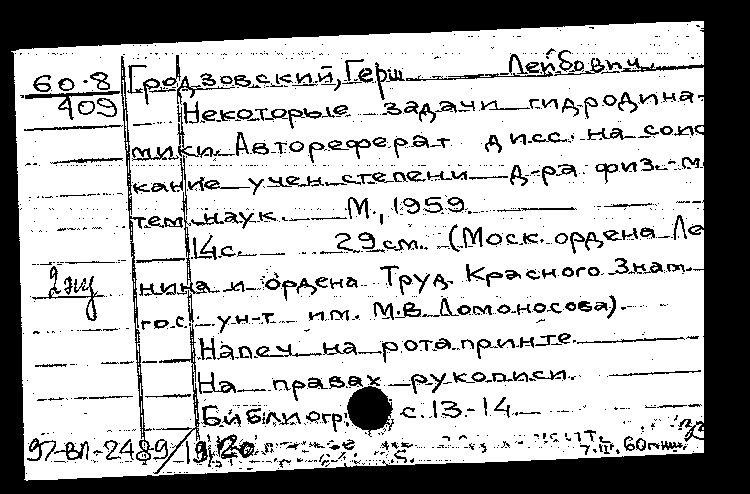 60-8 Гродзовский, Герш Лейбович.
409 Некоторые задачи гидродина-
мики. Автореферат дисс. на соис
кание учен. степени д-ра физ.-м
тем. наук. М., 1959.
14 с. 29 см. (Моск. ордена Ле
нина и ордена Труд. Красного Знам.
гос. ун-т им. М.В. Ломоносова).
2 экз
Напеч. на ротапринте.
На правах рукописи.
Библиогр. с. 13-14.
97-ВЛ-2489/19/20
7.III.60